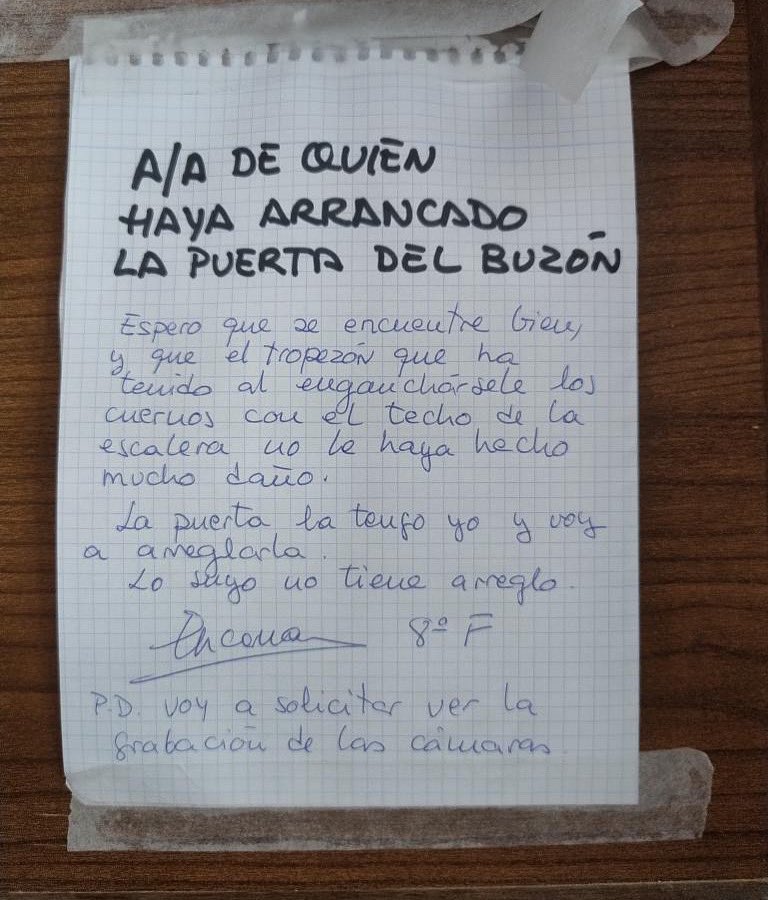 A/A DE QUIÉN
HAYA ARRANCADO
LA PUERTA DEL BUZÓN
Espero que se encuentre bien,
y que el tropezón que ha
tenido al enganchársele los
cuernos con el techo de la
escalera no le haya hecho
mucho daño.
La puerta la tengo yo y voy
a arreglarla.
Lo suyo no tiene arreglo.
Encarna 8º F
P.D. voy a solicitar ver la
grabación de las cámaras.